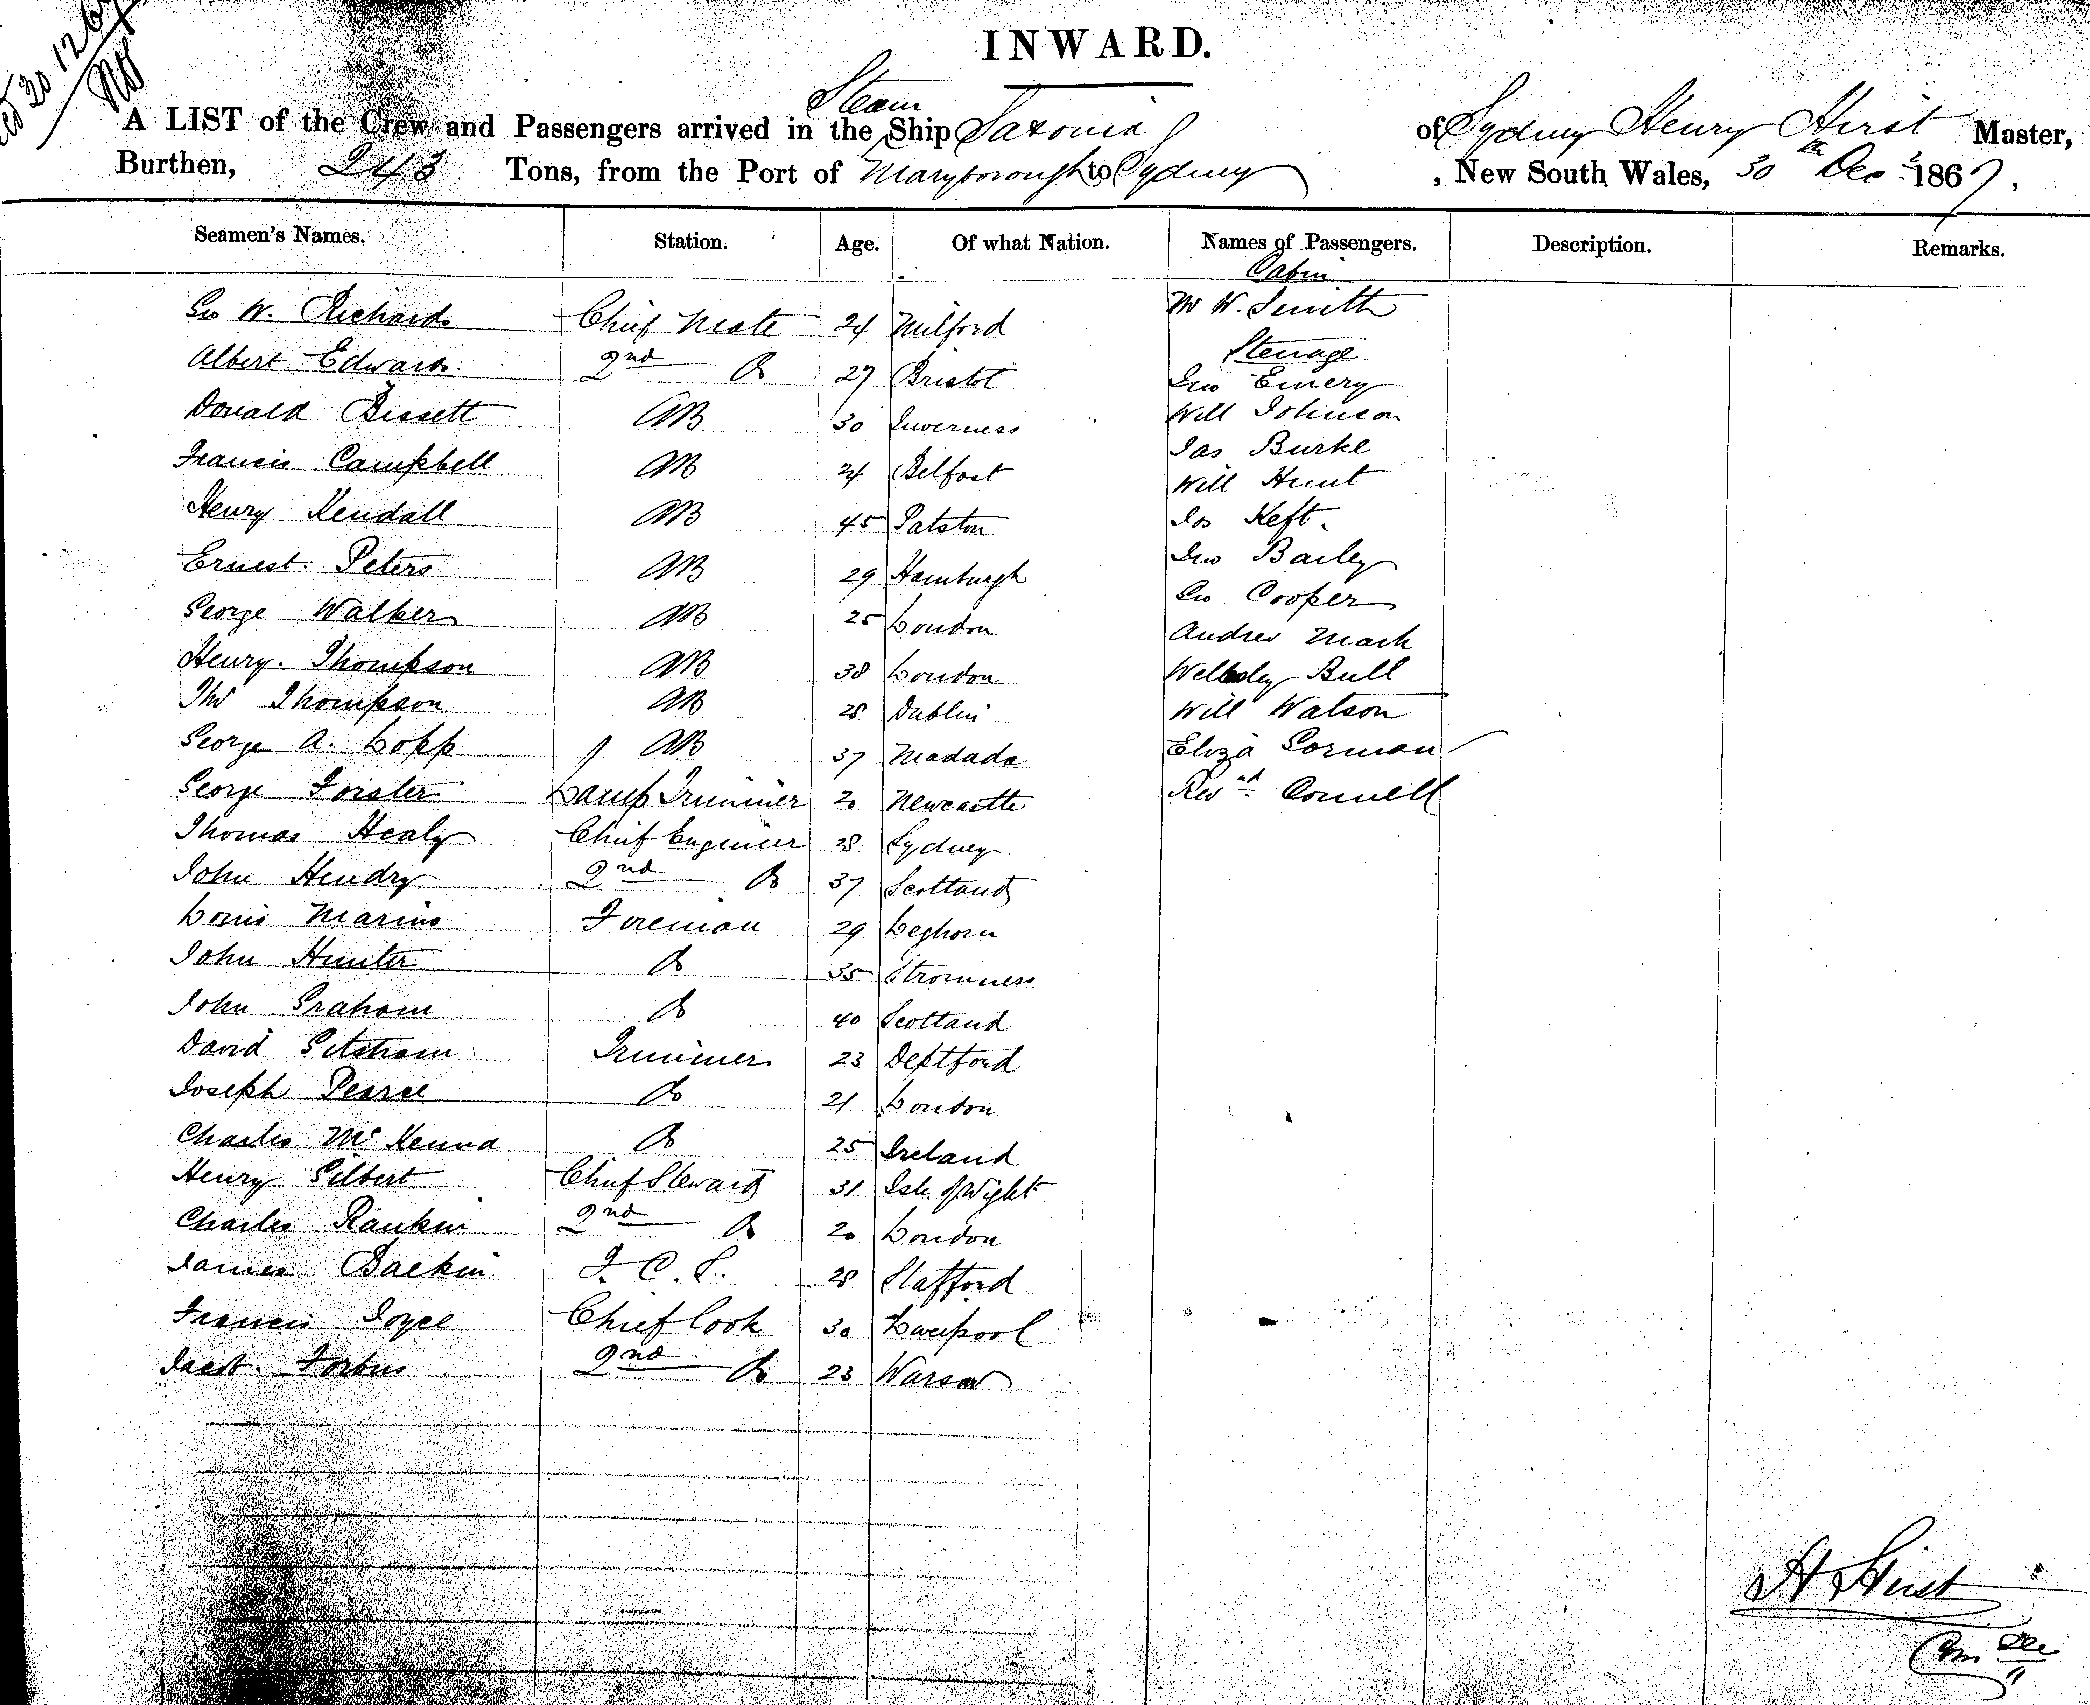 INWARD.
A LIST of the Crew and Passengers arrived in the Steam Ship Saxonia of Sydney Henry Hirst Master,
Burthen, 243 Tons, from the Port of Maryborough to Sydney, New South Wales, 30th Decr 1867.
Seamen's Names. Station. Age. Of what Nation. Names of Passengers. Description. Remarks.
Cabin
Geo W. Richards Chief Mate 24 Milford Mr W. Smith
Steerage
Albert Edwards 2nd Do 27 Bristol Jno Emery
Donald Bissett AB 30 Inverness Will Johnson
Jas Burke
Francis Campbell AB 24 Belfast Will Hunt
Henry Kendall AB 45 Jos Keft
Ernest Peters AB 29 Hamburgh Jno Bailey
Geo Cooper
George Walker AB 25 London Andrew Mack
Henry Thompson AB 38 London Wellesley Bull
Thos Thompson AB 28 Dublin Will Watson
George A. Lopp AB 37 Eliza Gorman
George Forster Lamp Trimmer 20 Newcastle Revd Connell
Thomas Healy Chief Engineer 28 Sydney
John Hendry 2nd Do 37 Scotland
Louis Marino Fireman 29 Leghorn
John Hunter Do 35 Stromness
John Graham Do 40 Scotland
David Trimmer 23 Deptford
Joseph Pearce Do 21 London
Charles McKenna Do 25 Ireland
Henry Gilbert Chief Steward 31 Isle of Wight
Charles Rankin 2nd Do 20 London
James 28 Stafford
Francis Joyce Chief Cook 30 Liverpool
Jacob Forbus 2nd Do 23 Warsaw
H Hirst